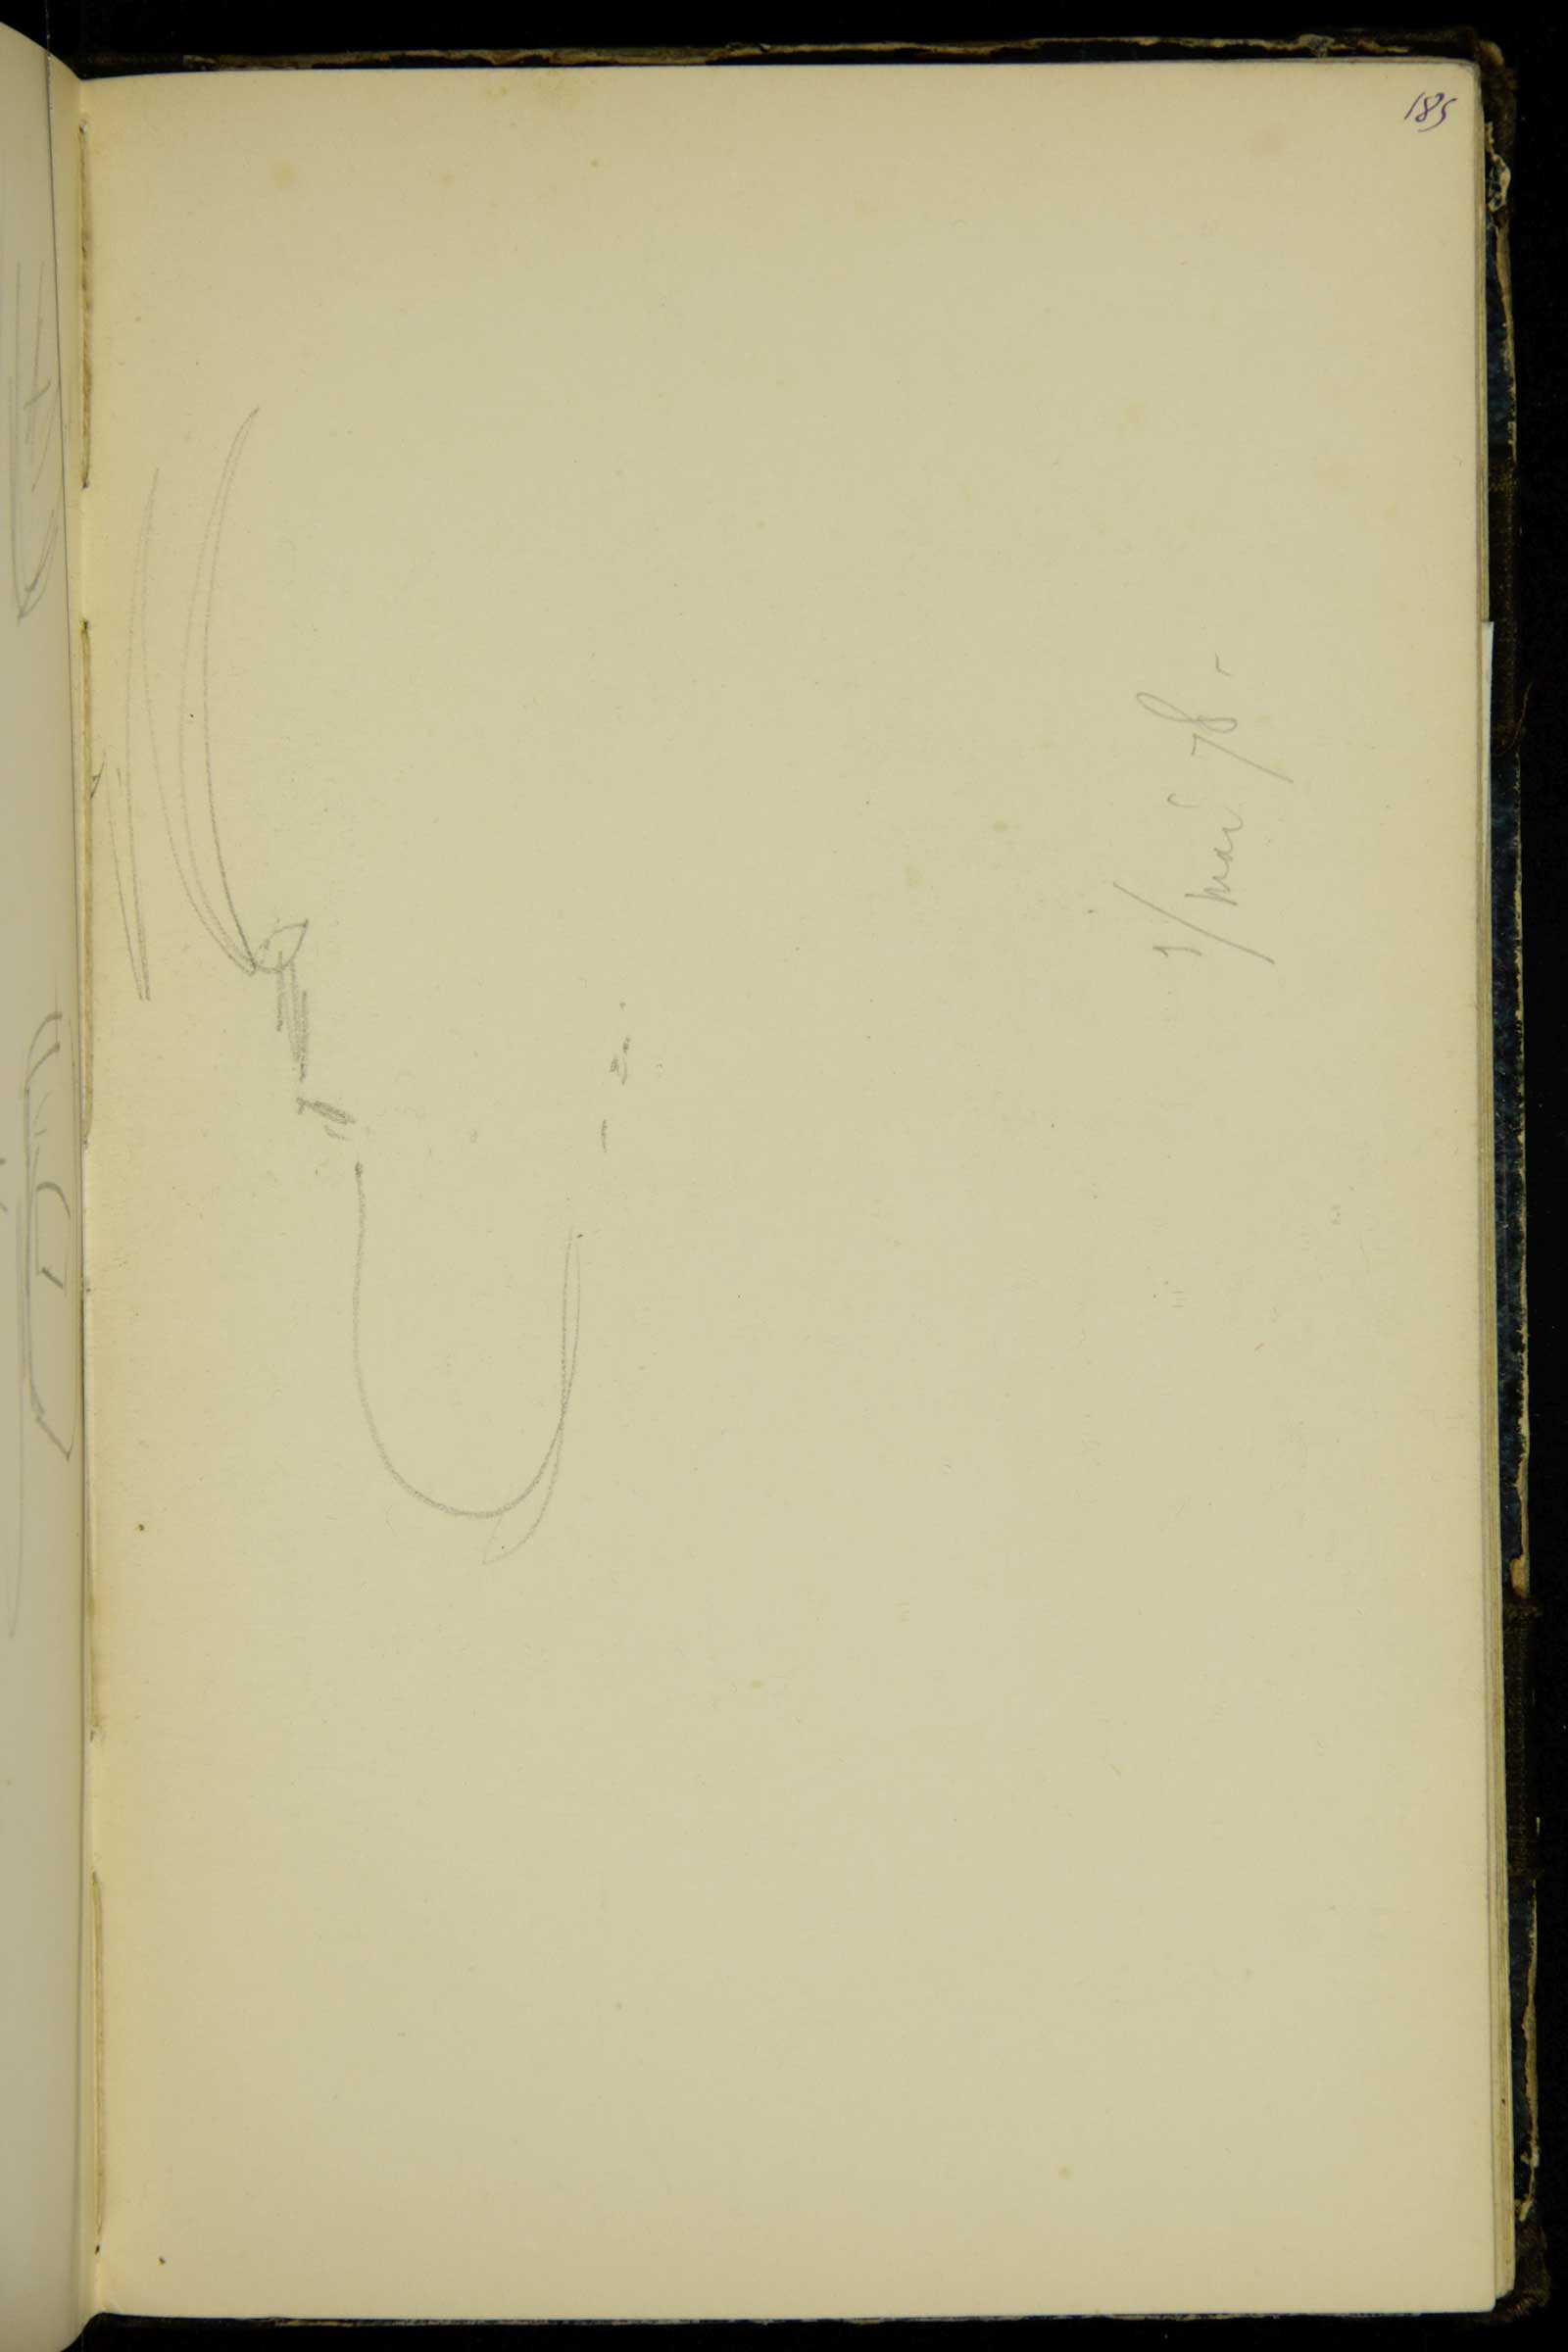 185
1/ mar 78 -